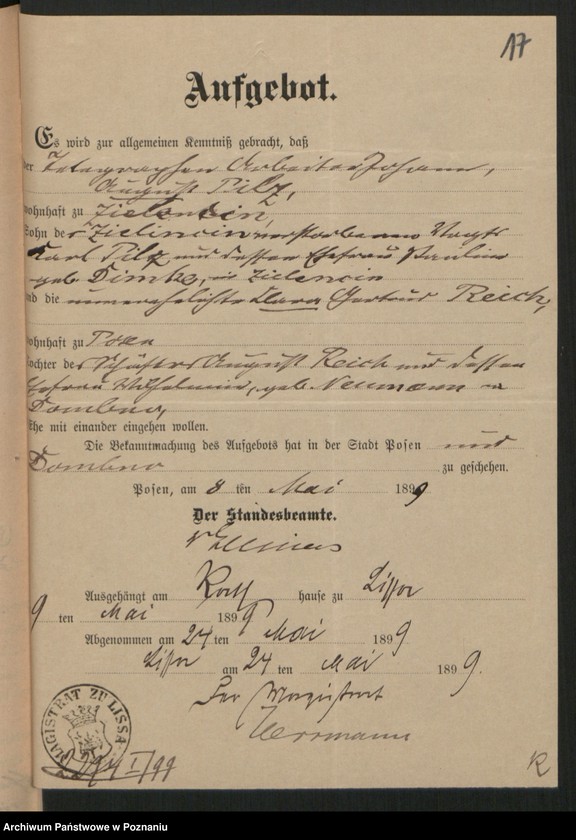 17
Aufgebot.
Es wird zur allgemeinen Kenntniß gebracht, daß
der Telegraphen Arbeiter Johann,
August Pilz,
wohnhaft zu Zielencin,
Sohn des Zielincin verstorbenen Vogts
Karl Pilz und dessen Ehefrau Pauline
geb. Dimke, in Zielencin
und die unverehelichte Klara Gertrud Reich,
wohnhaft zu Posen
Tochter des Schäfers August Reich und dessen
Ehefrau Wilhelmine, geb. Neumann in
Dombno,
Ehe mit einander eingehen wollen.
Die Bekanntmachung des Aufgebots hat in der Stadt Posen und
Dombno zu geschehen.
Posen, am 8 ten Mai 1899
Der Standesbeamte.
Ausgehängt am Rath hause zu Lissa
9 ten Mai 1899
Abgenommen am 24 ten Mai 1899
Lissa am 24 ten Mai 1899.
Der Magistrat
Herrmann
MAGISTRAT ZU LISSA
I/99
R
Archiwum Państwowe w Poznaniu